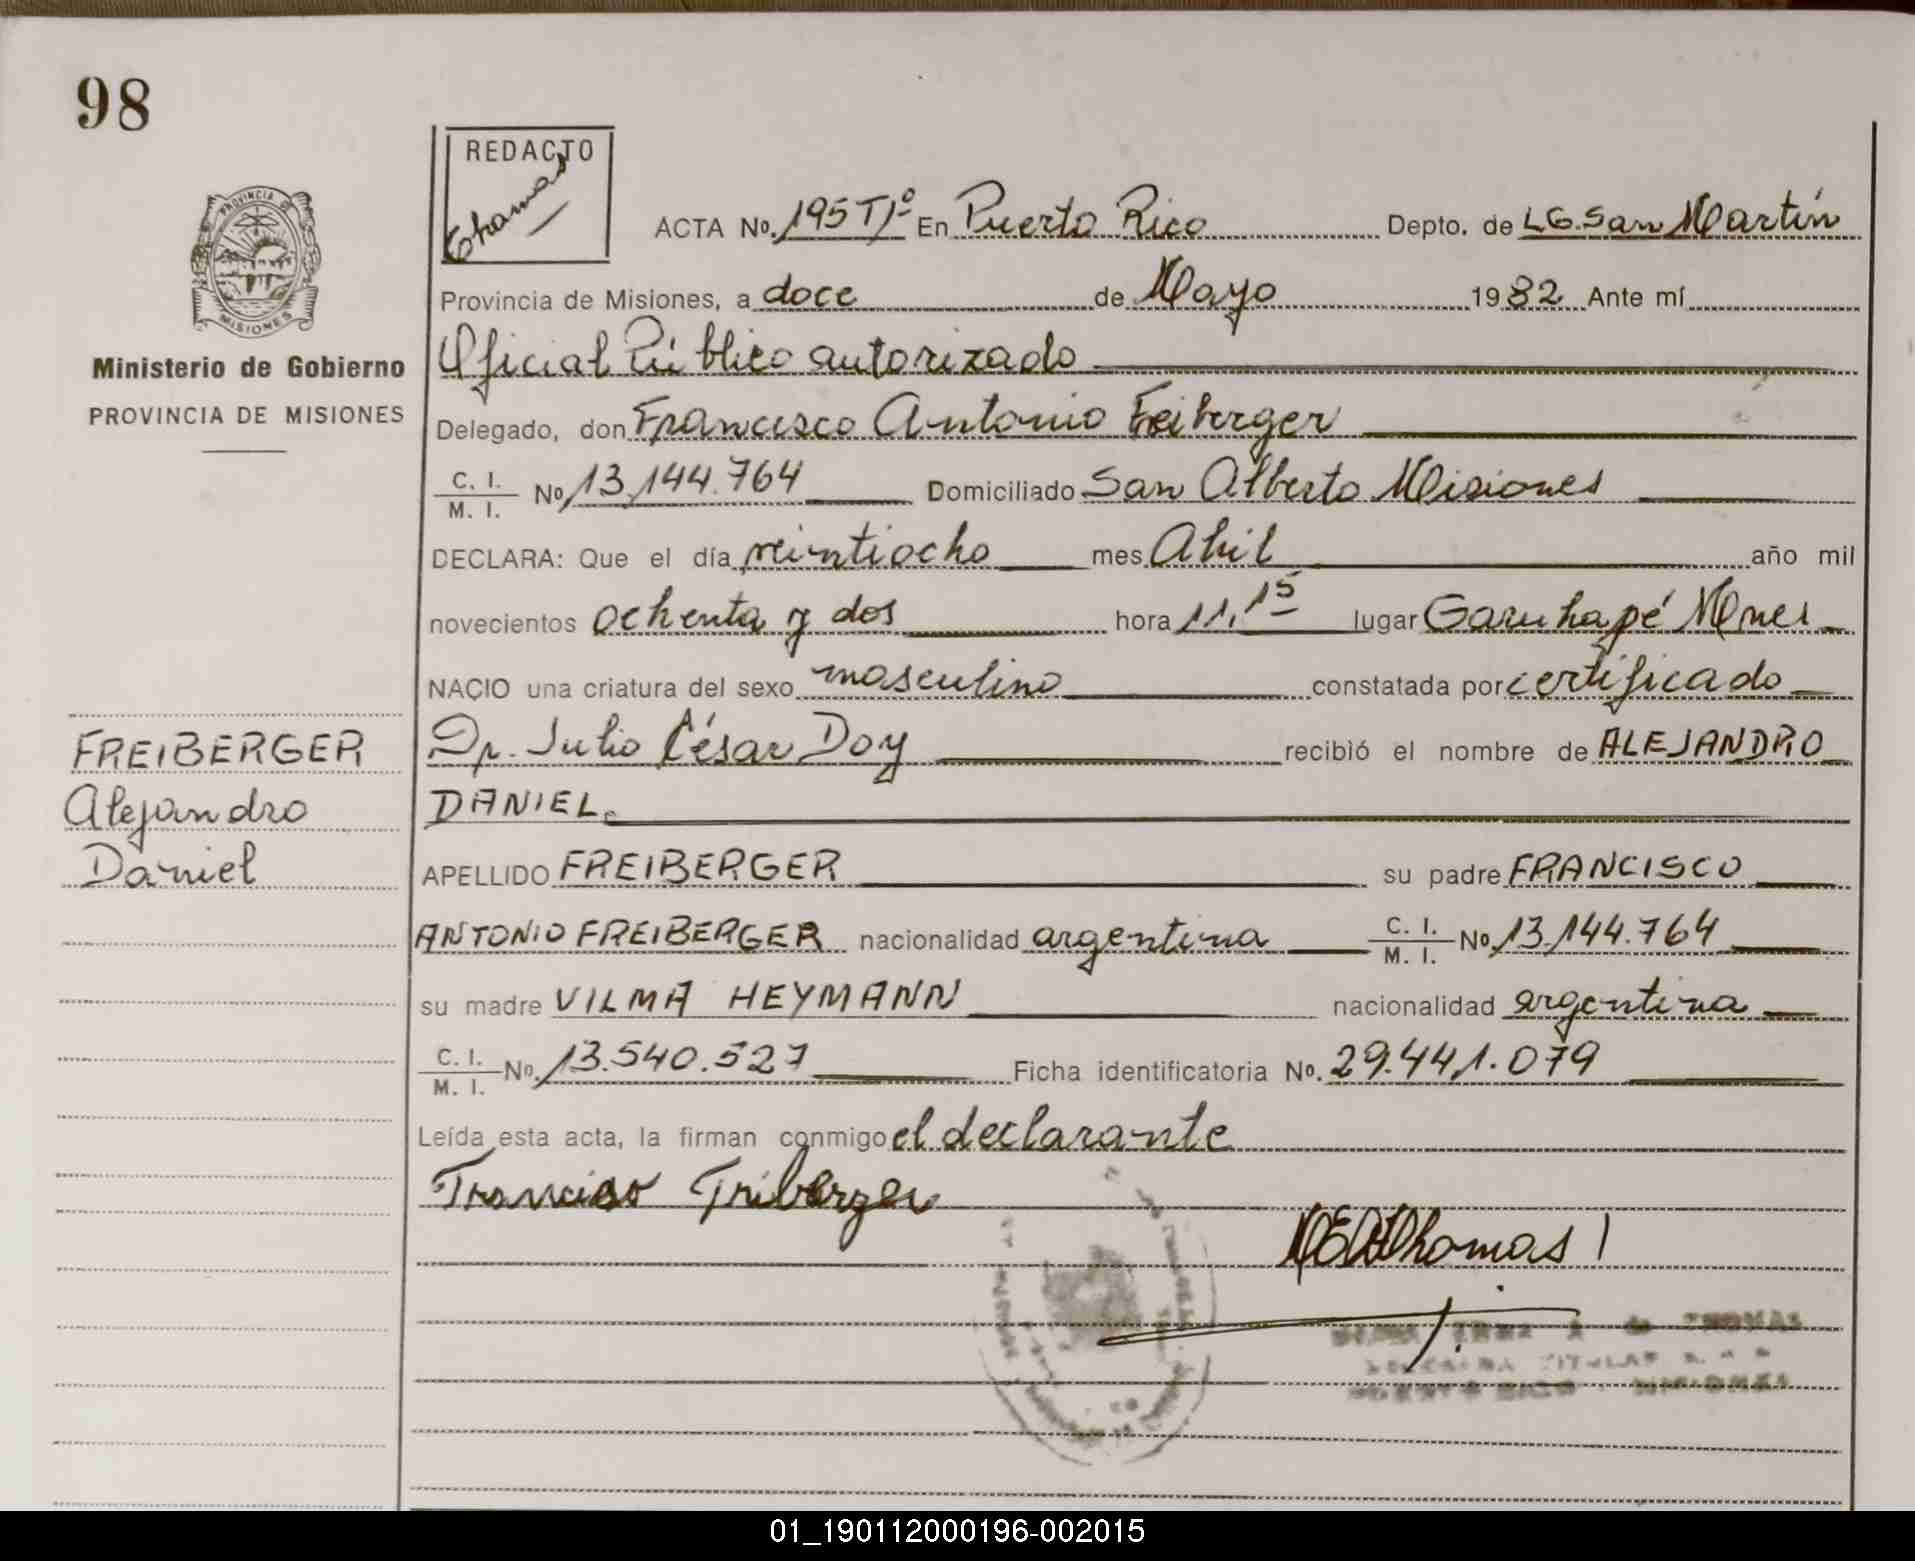 98
REDACTO
Thomas
ACTA No. 195 Tº En Puerto Rico Depto. de LG. San Martín
PROVINCIA DE
MISIONES
Provincia de Misiones, a doce de Mayo 1982 Ante mí
Ministerio de Gobierno
PROVINCIA DE MISIONES
Oficial Público autorizado
Delegado, don Francisco Antonio Freiberger
C. I. / M. I. No 13.144.764 Domiciliado San Alberto Misiones
DECLARA: Que el día veintiocho mes Abril año mil
novecientos ochenta y dos hora 11,15 lugar Garuhapé Mnes
NACIO una criatura del sexo masculino constatada por certificado
FREIBERGER
Alejandro
Daniel
Dr. Julio César Doy recibió el nombre de ALEJANDRO
DANIEL.
APELLIDO FREIBERGER su padre FRANCISCO
ANTONIO FREIBERGER nacionalidad argentina C. I. / M. I. No 13.144.764
su madre VILMA HEYMANN nacionalidad argentina
C. I. / M. I. No. 13.540.527 Ficha identificatoria No. 29.441.079
Leída esta acta, la firman conmigo el declarante
Francisco Friberger
Thomas
01_190112000196-002015